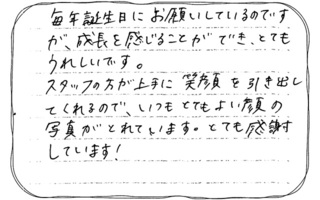 毎年誕生日にお願いしているのです
が、成長を感じることができ、とても
うれしいです。
スタッフの方が上手に笑顔を引き出し
てくれるので、いつもとてもよい顔の
写真がとれています。とても感謝
しています!